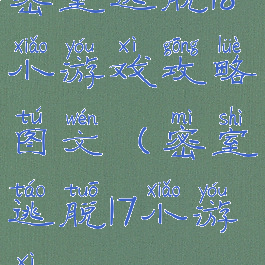 密室逃脱18
xiǎo yóu xì gōng lüè
小游戏攻略
tú wén mì shì
图文(密室
táo tuō xiǎo yóu
逃脱17小游
xì